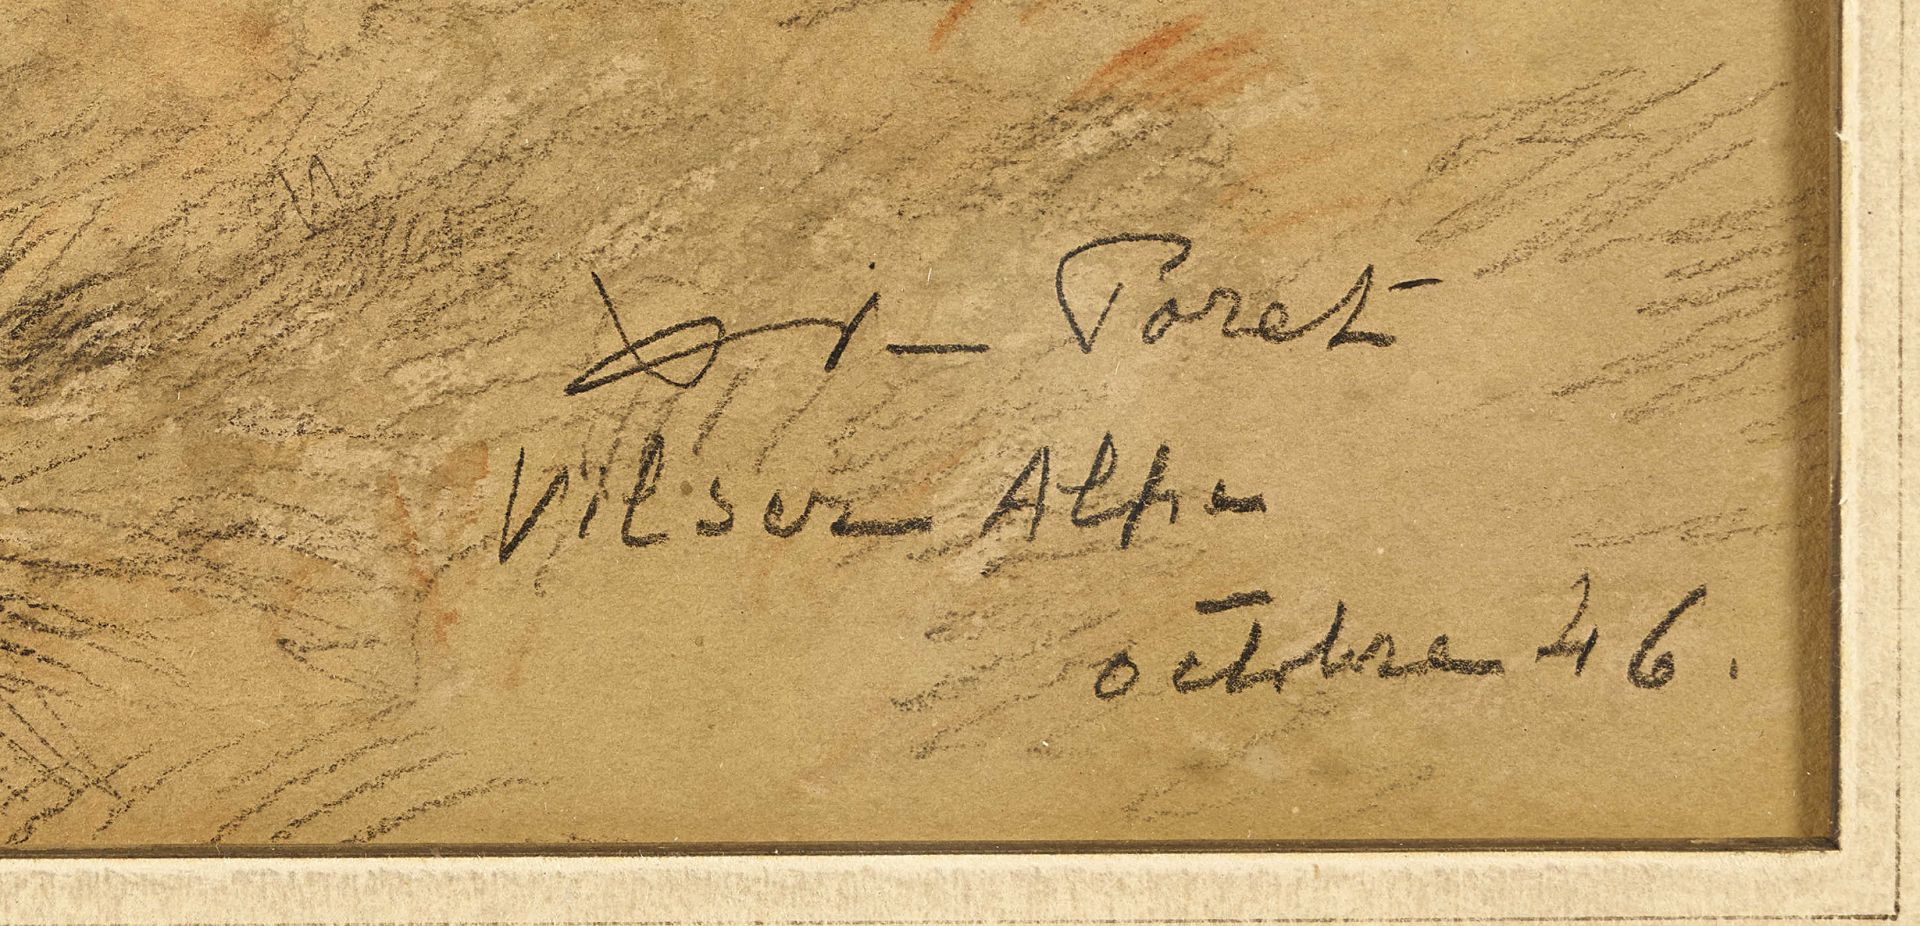 Poret
Vilser Alpe
octobre 46.